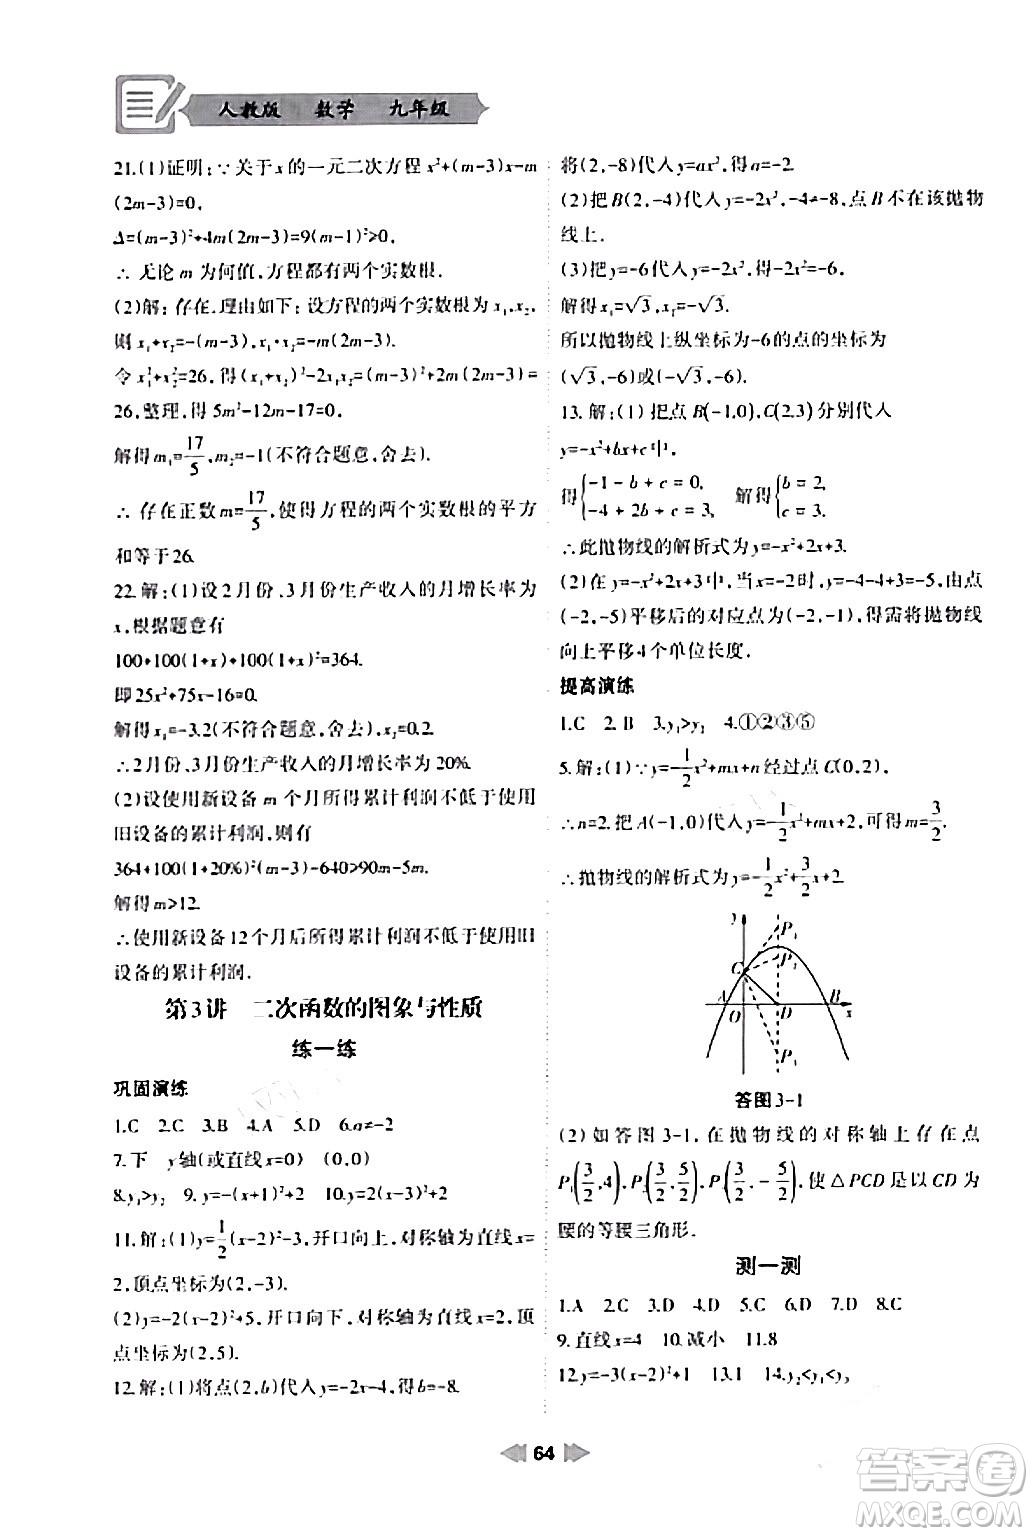 人教版 数学 九年级
21.(1)证明:∵关于x的一元二次方程x²+(m-3)x-m
(2m-3)=0,
Δ=(m-3)²+4m(2m-3)=9(m-1)²≥0,
∴ 无论 m 为何值,方程都有两个实数根.
(2)解:存在.理由如下:设方程的两个实数根为x₁,x₂,
则x₁+x₂=-(m-3),x₁·x₂=-m(2m-3).
令x₁²+x₂²=26,得(x₁+x₂)²-2x₁x₂=(m-3)²+2m(2m-3)=
26,整理,得5m²-12m-17=0,
解得m₁=17/5,m₂=-1(不符合题意,舍去).
∴ 存在正数m=17/5,使得方程的两个实数根的平方
和等于26.
22.解:(1)设2月份、3月份生产收入的月增长率为
x,根据题意有
100+100(1+x)+100(1+x)²=364.
即25x²+75x-16=0.
解得x₁=-3.2(不符合题意,舍去),x₂=0.2.
∴2月份、3月份生产收入的月增长率为20%.
(2)设使用新设备m个月所得累计利润不低于使用
旧设备的累计利润,则有
364+100(1+20%)²(m-3)-640≥90m-5m.
解得m≥12.
∴使用新设备12个月后所得累计利润不低于使用旧
设备的累计利润.
第3讲 二次函数的图象与性质
练一练
巩固演练
1.C 2.C 3.B 4.A 5.D 6.a≠-2
7.下 y轴(或直线x=0) (0,0)
8.y₁>y₂ 9.y=-(x+1)²+2 10.y=2x²+2
11.解:(1)y=1/2(x-2)²-3,开口向上,对称轴为直线x=
2,顶点坐标为(2,-3).
(2)y=-2(x-2)²+5,开口向下,对称轴为直线x=2,顶
点坐标为(2,5).
12.解:(1)将点(2,b)代入y=-2x-4,得b=-8.
将(2,-8)代入y=ax²,得a=-2.
(2)把B(2,-4)代入y=-2x²,-4≠-8,点B不在该抛物
线上.
(3)把y=-6代入y=-2x²,得-2x²=-6,
解得x₁=√3,x₂=-√3.
所以抛物线上纵坐标为-6的点的坐标为
(√3,-6)或(-√3,-6).
13.解:(1)把点B(-1,0),C(2,3)分别代入
y=-x²+bx+c中,
得{-1-b+c=0, -4+2b+c=3, 解得{b=2, c=3.
∴此抛物线的解析式为y=-x²+2x+3.
(2)在y=-x²+2x+3中,当x=-2时,y=-4-4+3=-5,由点
(-2,-5)平移后的对应点为(-2,-1),得需将抛物线
向上平移4个单位长度.
提高演练
1.C 2.B 3.y₁>y₂ 4.①②③⑤
5.解:(1)∵y=-1/2x²+mx+n经过点C(0,2),
∴n=2.把A(-1,0)代入y=-1/2x²+mx+2,可得m=3/2.
∴抛物线的解析式为y=-1/2x²+3/2x+2.
y P₁ P₂ C A O D B x P₃
答图3-1
(2)如答图3-1,在抛物线的对称轴上存在点
P₁(3/2,4),P₂(3/2,5/2),P₃(3/2,-5/2),使△PCD是以CD为
腰的等腰三角形.
测一测
1.A 2.C 3.C 4.D 5.C 6.D 7.D 8.C
9.直线x=4 10.减小 11.8
12.y=-3(x-2)²+3 13.1 14.y₂<y₁<y₃
64
答案圈
MXQE.COM